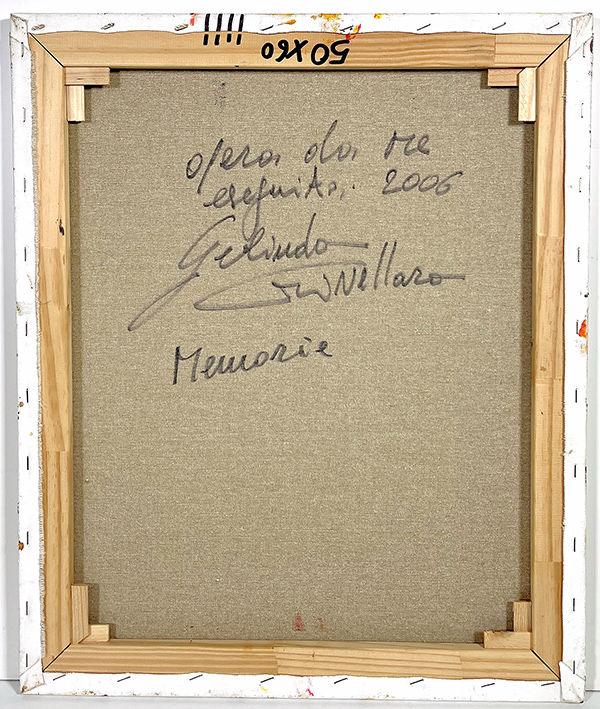 50x60
opera da me
eseguita, 2006
Gelindo
Crivellaro
Memorie